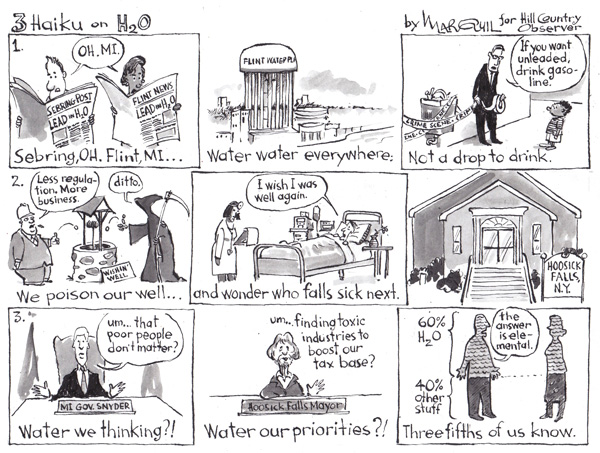 3 Haiku on H2O
by MARGUIL for Hill Country
Observer
1.
OH, MI.
SEBRING POST
LEAD IN H2O
FLINT NEWS
LEAD IN H2O
Sebring, OH. Flint, MI...
FLINT WATER PL
Water water everywhere.
If you want
unleaded,
drink gaso-
line.
CRIME SCENE
Not a drop to drink.
2.
Less regula-
tion. More
business.
ditto.
WISHIN'
WELL
We poison our well...
I wish I was
well again.
and wonder who falls sick next.
HOOSICK
FALLS,
N.Y.
3.
um... that
poor people
don't matter?
MI GOV. SNYDER
Water we thinking?!
um... finding toxic
industries to
boost our
tax base?
Hoosick Falls Mayor
Water our priorities?!
60%
H2O
40%
other
stuff
the
answer
is ele-
mental.
Three fifths of us know.